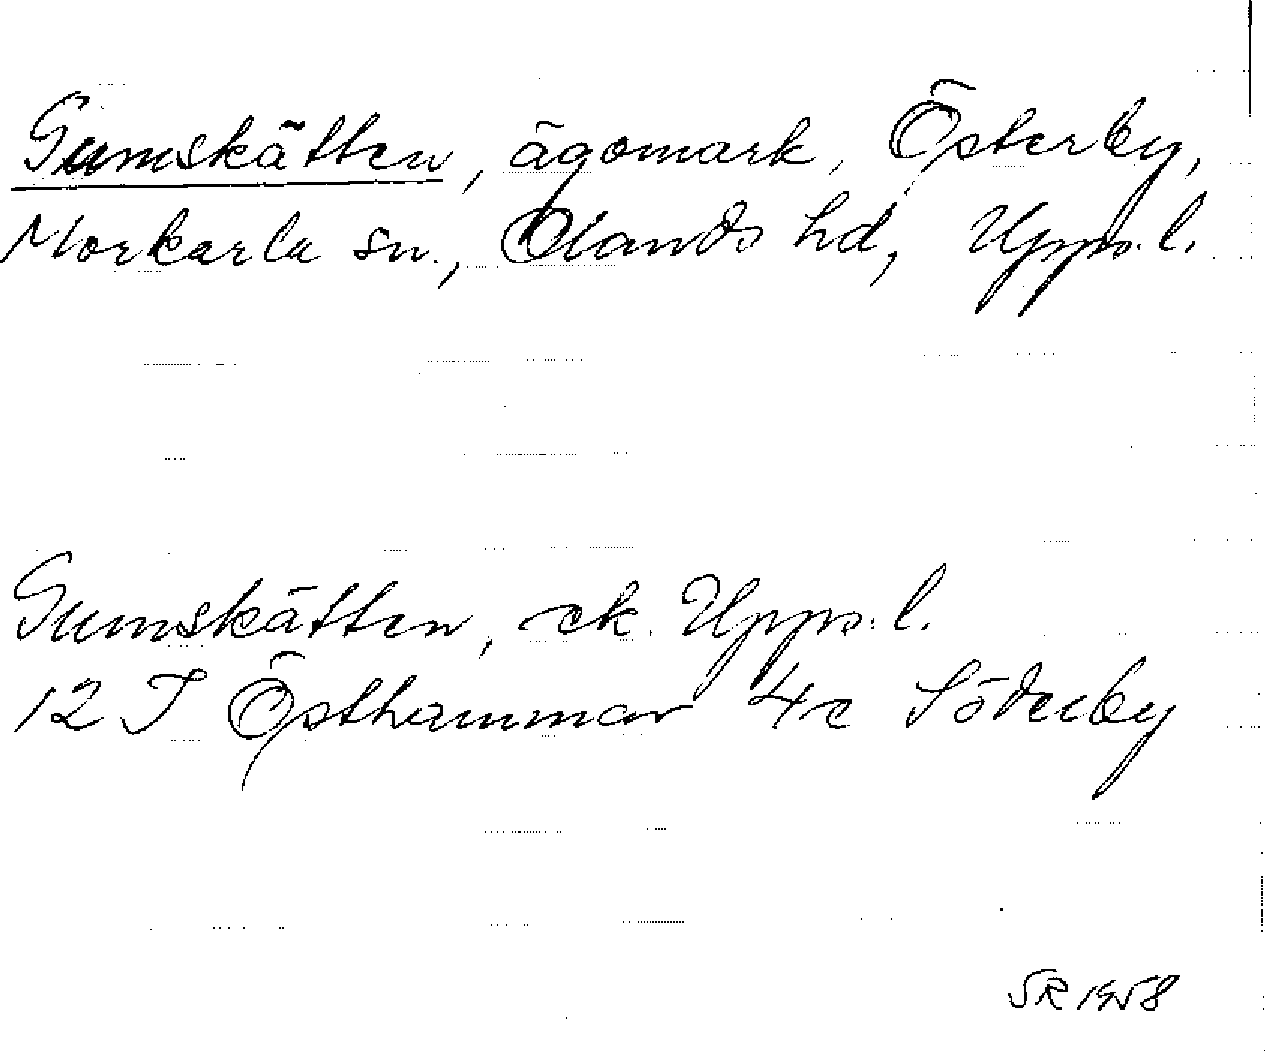 Gumskätten, ägomark, Österby,
Morkarla sn., Olands hd, Upps. l.
Gumskätten, ek. Upps. l.
12 I Östhammar 4c Söderby
SR 1958